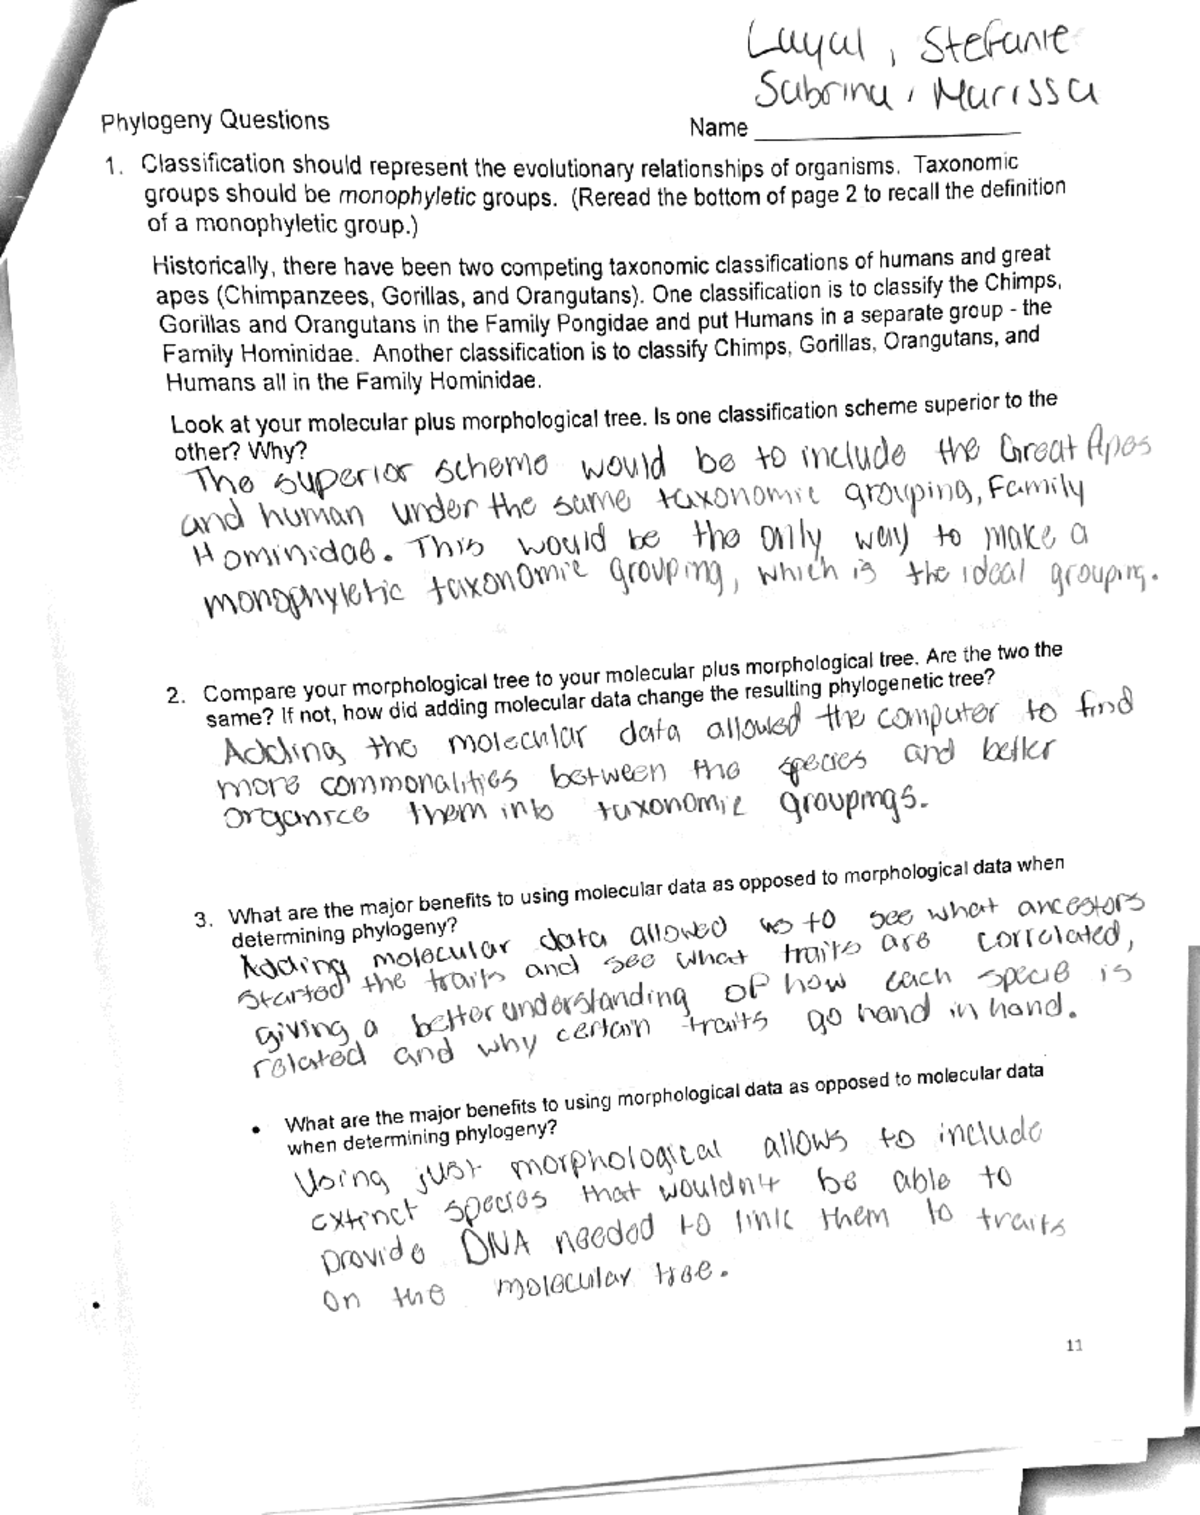 Layal, Stefanie
Sabrina, Marissa
Phylogeny Questions
Name
1. Classification should represent the evolutionary relationships of organisms. Taxonomic
groups should be monophyletic groups. (Reread the bottom of page 2 to recall the definition
of a monophyletic group.)
Historically, there have been two competing taxonomic classifications of humans and great
apes (Chimpanzees, Gorillas, and Orangutans). One classification is to classify the Chimps,
Gorillas and Orangutans in the Family Pongidae and put Humans in a separate group - the
Family Hominidae. Another classification is to classify Chimps, Gorillas, Orangutans, and
Humans all in the Family Hominidae.
Look at your molecular plus morphological tree. Is one classification scheme superior to the
other? Why?
The superior scheme would be to include the Great Apes
and human under the same taxonomic grouping, Family
Hominidae. This would be the only way to make a
monophyletic taxonomic grouping, which is the ideal grouping.
2. Compare your morphological tree to your molecular plus morphological tree. Are the two the
same? If not, how did adding molecular data change the resulting phylogenetic tree?
Adding the molecular data allowed the computer to find
more commonalities between the species and better
organize them into taxonomic groupings.
3. What are the major benefits to using molecular data as opposed to morphological data when
determining phylogeny?
Adding molecular data allowed us to see what ancestors
started the traits and see what traits are correlated,
giving a better understanding of how each specie is
related and why certain traits go hand in hand.
• What are the major benefits to using morphological data as opposed to molecular data
when determining phylogeny?
Using just morphological allows to include
extinct species that wouldn't be able to
provide DNA needed to link them to traits
on the molecular tree.
11